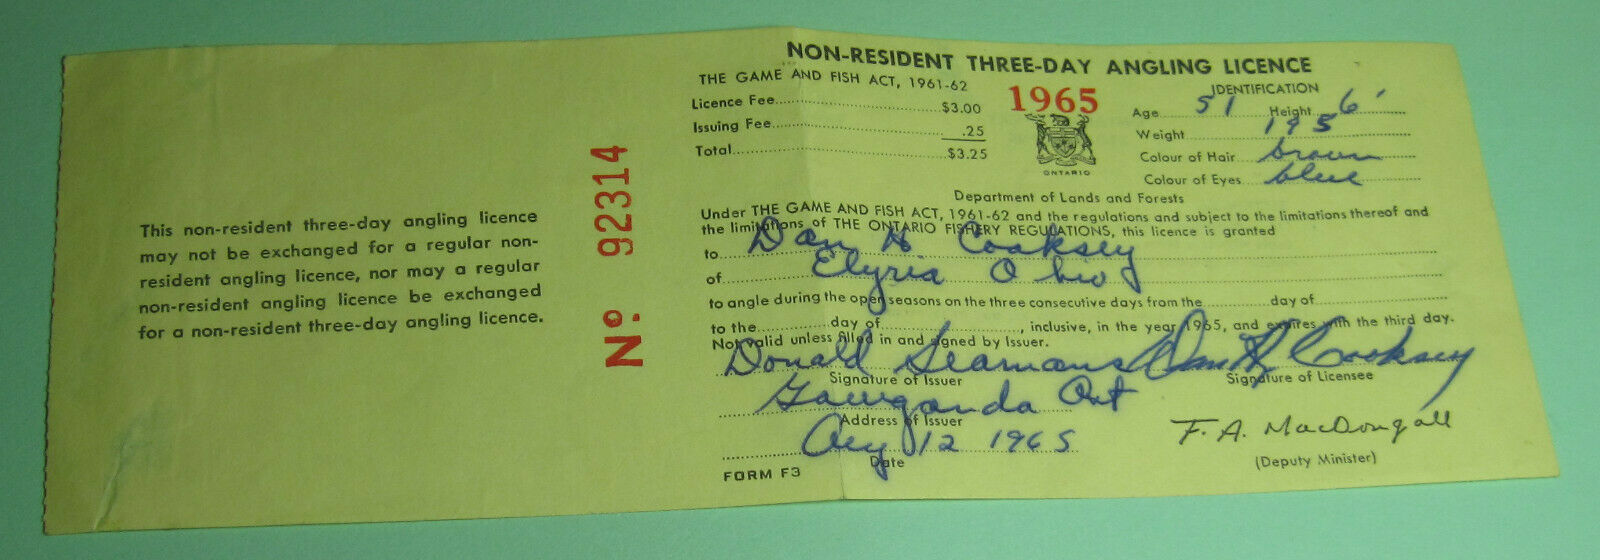 This non-resident three-day angling licence
may not be exchanged for a regular non-
resident angling licence, nor may a regular
non-resident angling licence be exchanged
for a non-resident three-day angling licence.
Nº. 92314
NON-RESIDENT THREE-DAY ANGLING LICENCE
THE GAME AND FISH ACT, 1961-62
Licence Fee........ $3.00
Issuing Fee........ .25
Total........ $3.25
1965
ONTARIO
IDENTIFICATION
Age 51 Height 6'
Weight 195
Colour of Hair brown
Colour of Eyes blue
Department of Lands and Forests
Under THE GAME AND FISH ACT, 1961-62 and the regulations and subject to the limitations thereof and
the limitations of THE ONTARIO FISHERY REGULATIONS, this licence is granted
to Dan H Cooksey
of Elyria Ohio
to angle during the open seasons on the three consecutive days from the ........ day of ........
to the ........ day of ........, inclusive, in the year 1965, and expires with the third day.
Not valid unless filled in and signed by Issuer.
Donald Seamans Dan H Cooksey
Signature of Issuer Signature of Licensee
Gowganda Ont
Address of Issuer
Aug 12 1965
Date
F. A. MacDougall
(Deputy Minister)
FORM F3